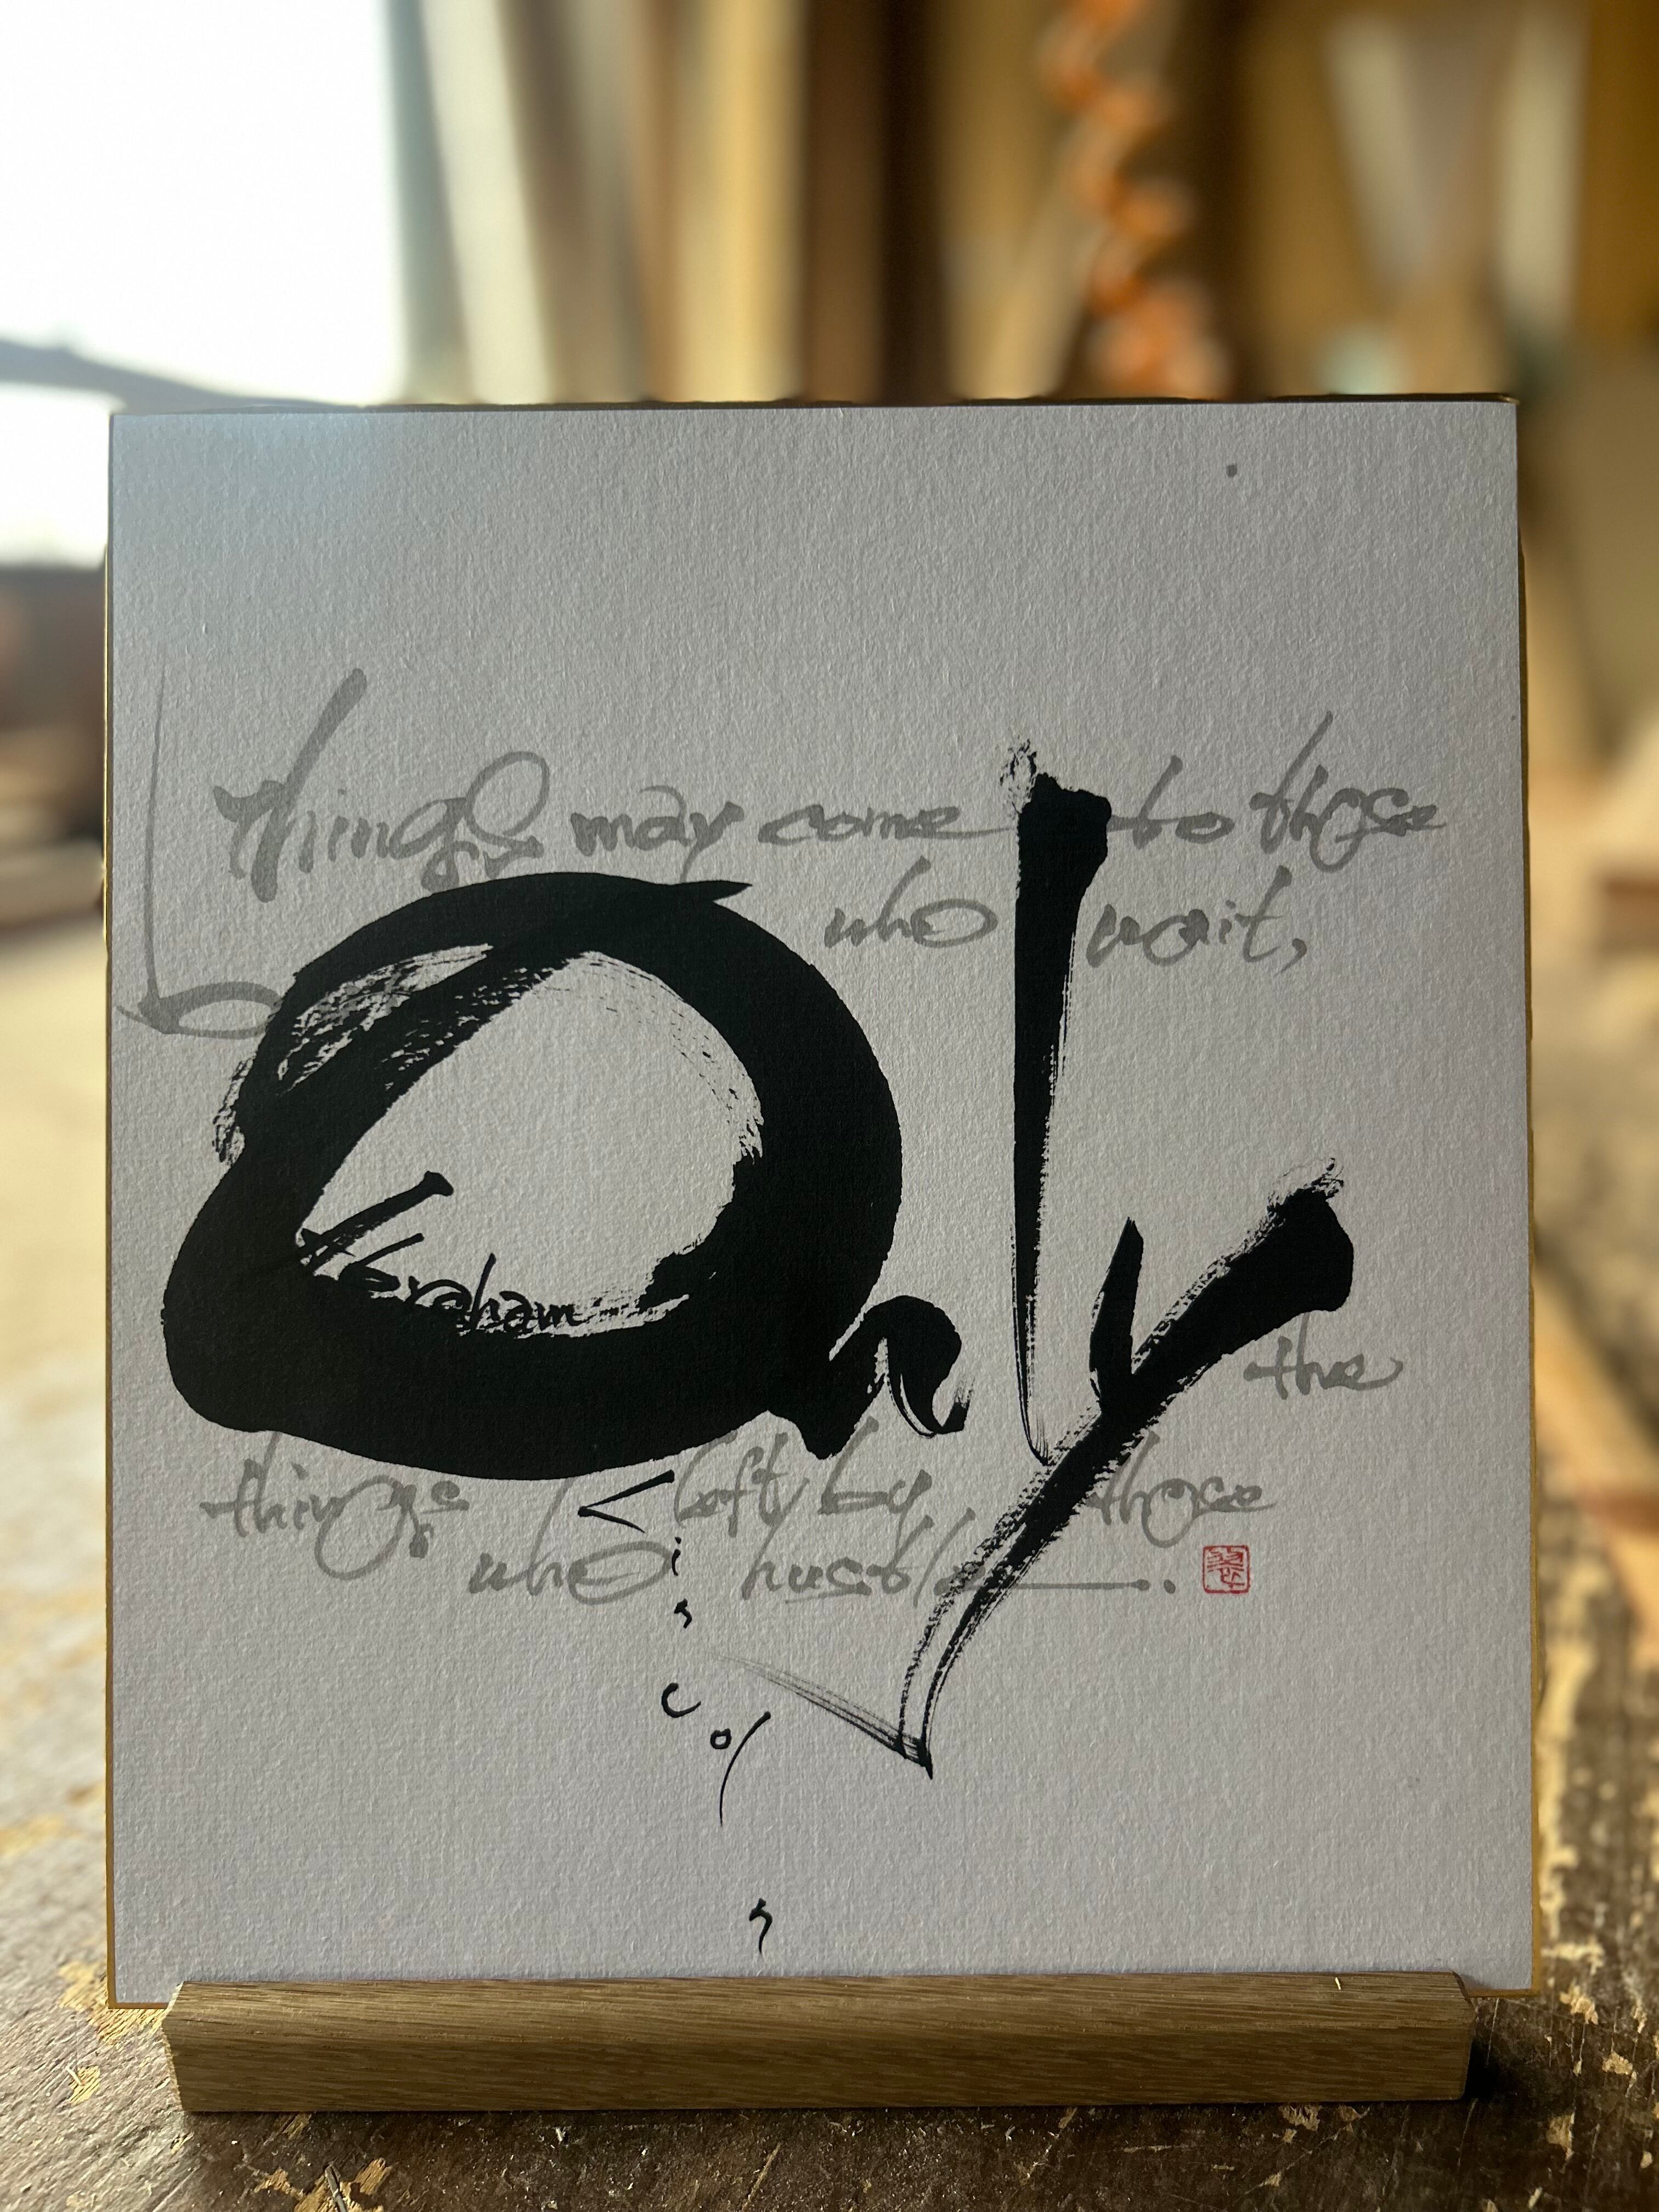 things may come to those
who wait,
Only
Abraham
the
things left by those
who hustle.
Lincoln